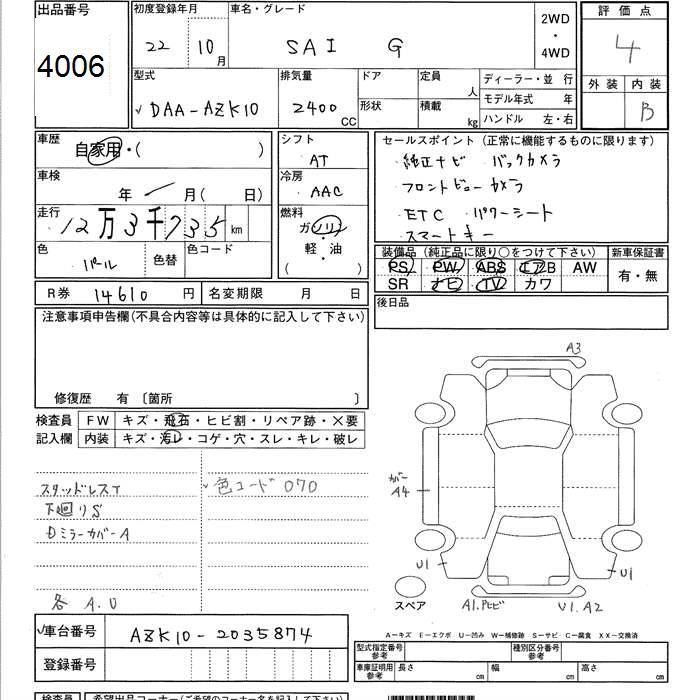 出品番号
4006
初度登録年月
22 10 月
車名・グレード
SAI G
2WD
・
4WD
評価点
4
外装 内装
B
型式
DAA-AZK10
排気量
2400 CC
ドア
形状
定員
人
積載
kg
ディーラー・並 行
モデル年式 年
ハンドル 左・右
車歴
自家用・( )
車検
年 月( 日)
走行
12万3千735 km
色
パール
色替
色コード
シフト
AT
冷房
AAC
燃料
ガソリン
・
軽・油
( )
セールスポイント (正常に機能するものに限ります)
純正ナビ バックカメラ
フロントビューカメラ
ETC パワーシート
スマートキー
装備品 (純正品に限り○をつけて下さい)
PS PW ABS エアB AW
SR ナビ TV カワ
新車保証書
有・無
R券 14610 円
名変期限 月 日
後日品
注意事項申告欄(不具合内容等は具体的に記入して下さい)
修復歴 有 〔箇所 〕
検査員
記入欄
FW キズ・飛石・ヒビ割・リペア跡・X要
内装 キズ・汚レ・コゲ・穴・スレ・キレ・破レ
スタッドレスT
下廻りS
Dミラーカバー A
各 A.U
色コード 070
A3
カバー
A4
U1
U1
スペア
A1.Pヒビ
U1.A2
A−キズ E−エクボ U−凹み W−補修跡 S−サビ C−腐食 XX−交換済
車台番号
AZK10-2035874
登録番号
型式指定番号
参考
種別区分番号
参考
車庫証明用
参考
長さ cm 幅 cm 高さ cm
検査員
希望出品コーナー(ご希望のコーナー名を記入下さい)